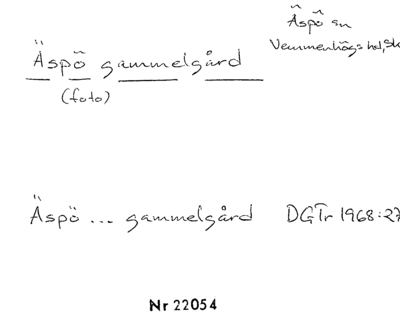 Äspö sn
Vemmenhögs hd, Sk
Äspö gammelgård
(foto)
Äspö ... gammelgård DGTr 1968:27
Nr 22054